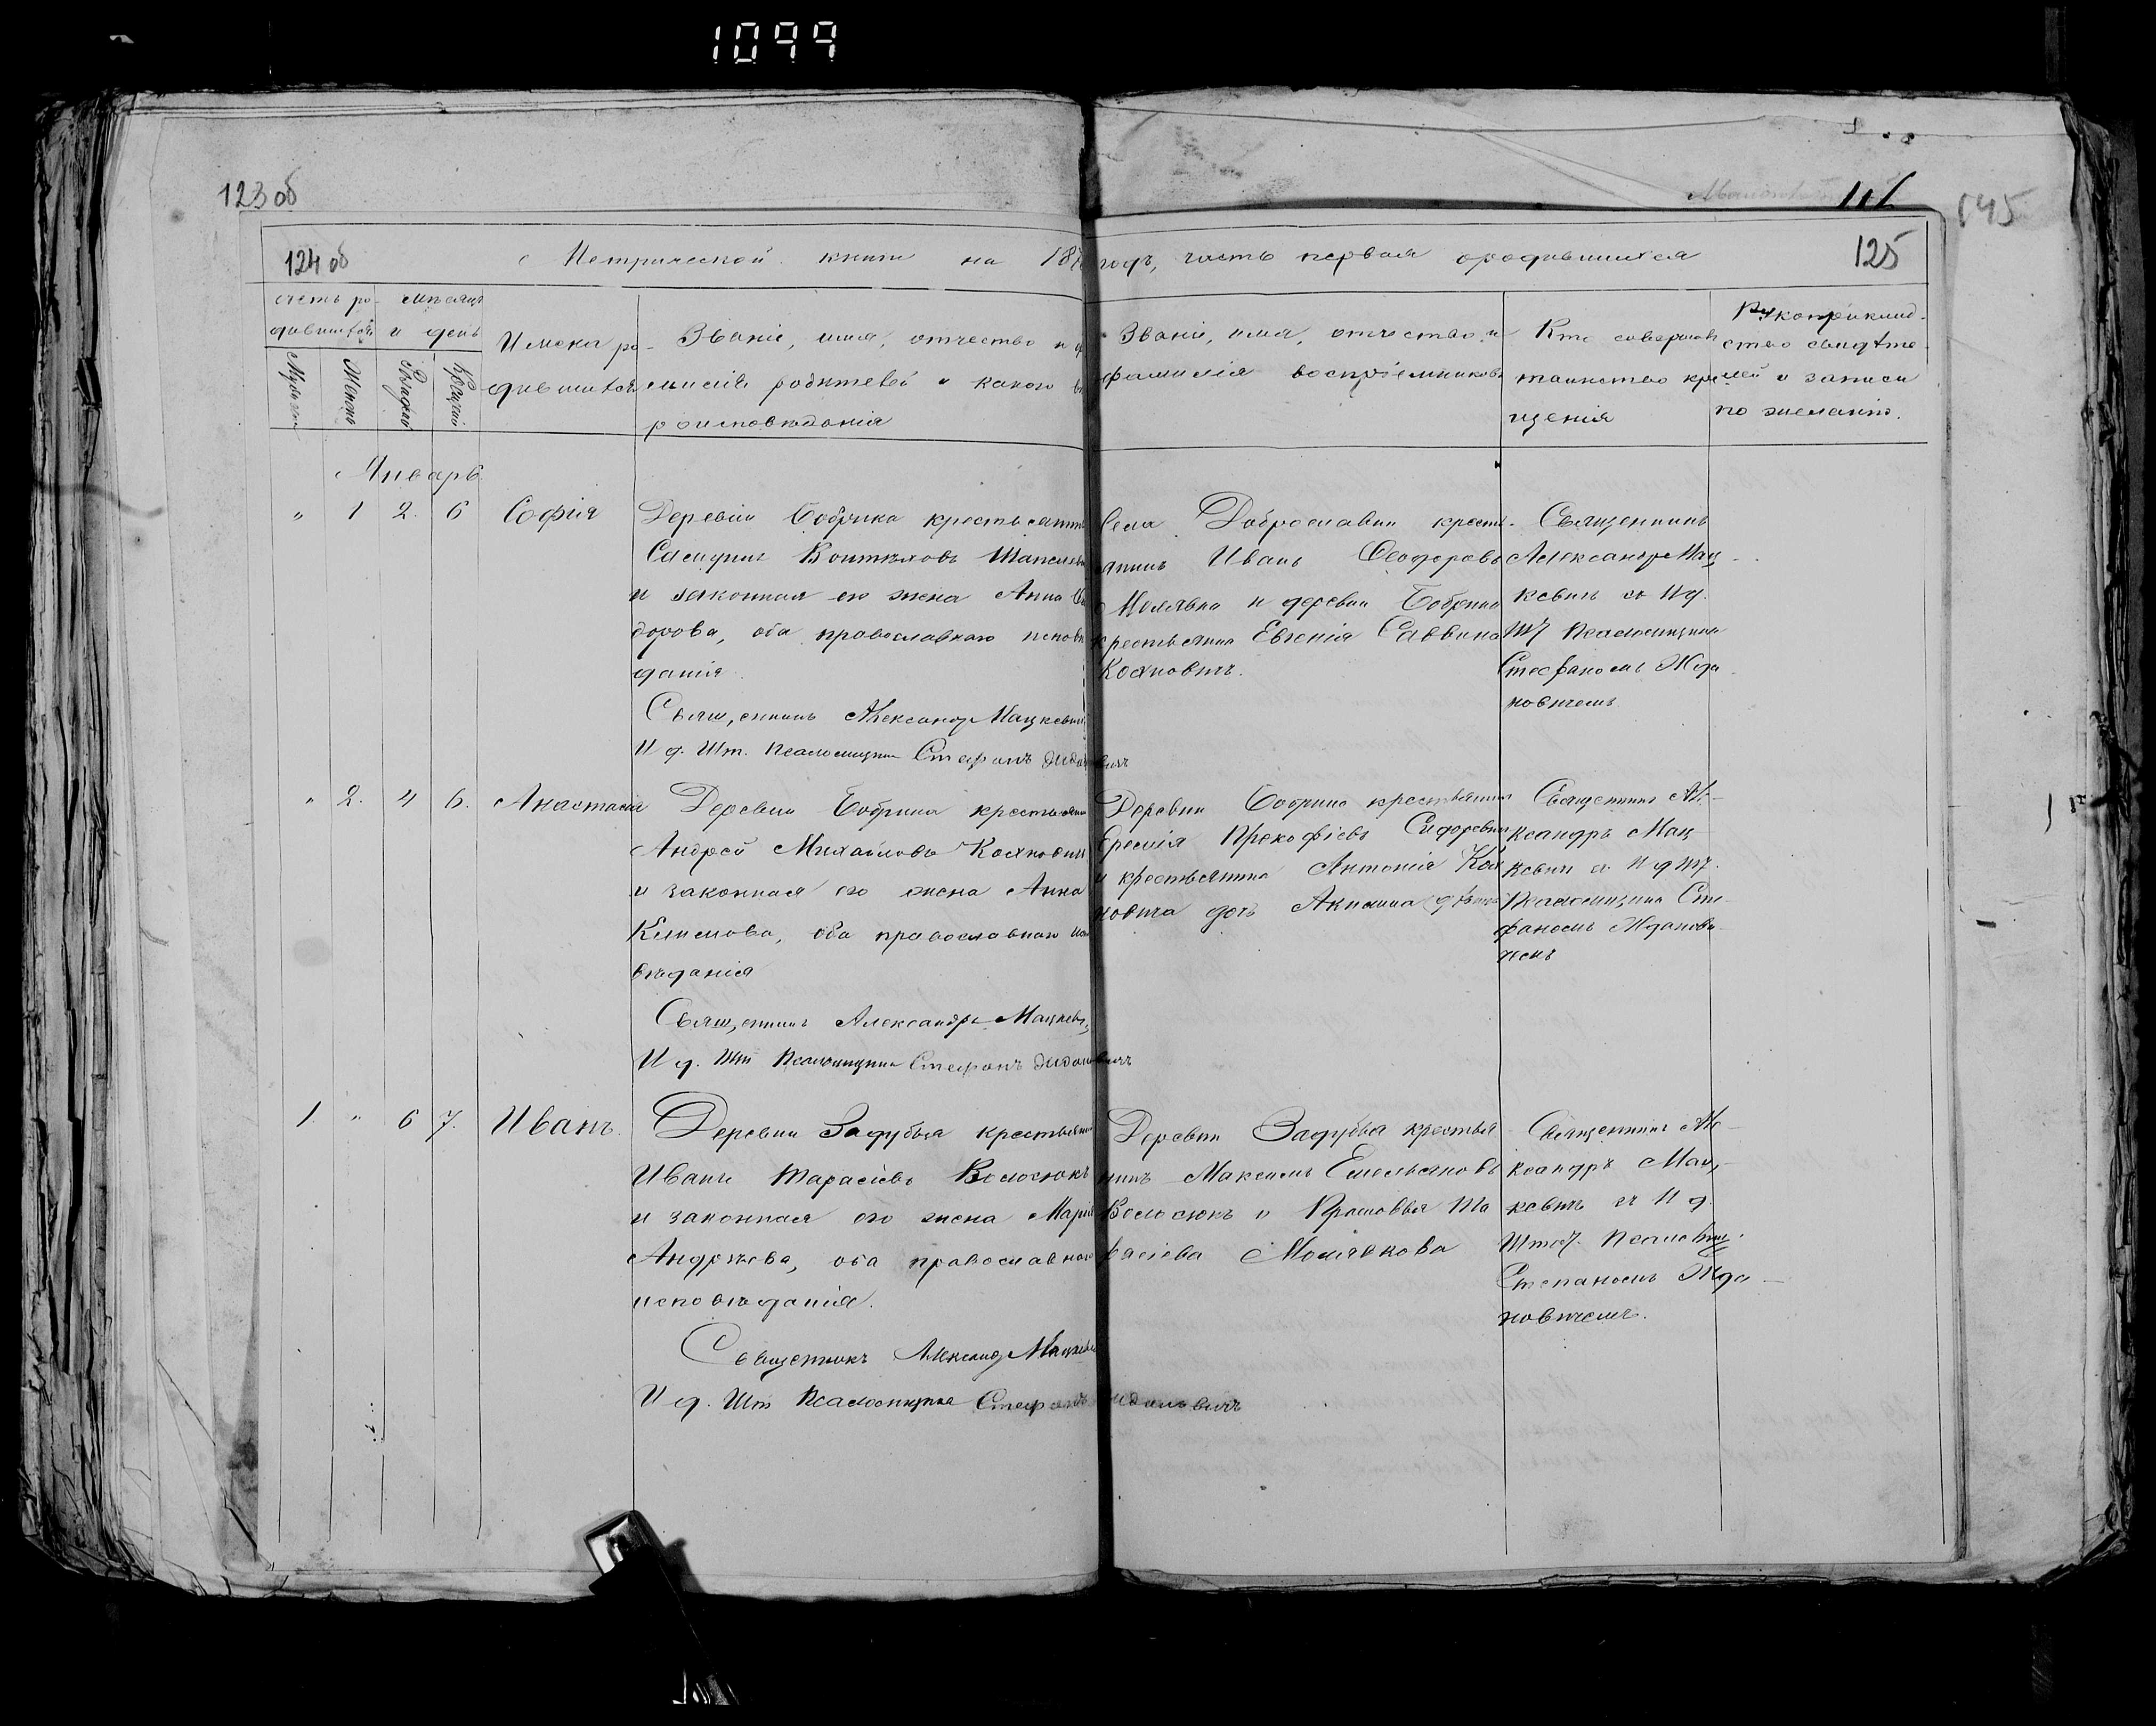 1099
123 об
145
124 об
125
Метрической книги на 18
годъ, часть первая о родившихся
счетъ ро-
дившихся
мѣсяцъ
и день
Женска
Рожденія
Крещенія
Имена ро-
дившихся
Званіе, имя, отчество и ф
милія родителей и какого вѣ
роисповѣданія
Званіе, имя, отчество и
фамилія воспріемниковъ
Кто совершалъ
таинство кре
щенія
Рукоприклад-
ство свидѣте
лей о записи
по желанію.
Январь
" 1 2. 6 Софія
Деревни Бобрика крестьянинъ
и законная его жена Анна Си
дорова, оба православнаго исповѣ
данія.
Священникъ Александр Мацкевич
И д. Шт. Псаломщика Стефанъ Жданович
Села Доброславки крестъ-
янинъ Иванъ Феодоровъ
Молявка и деревни Бобрика
крестьянка Евгенія Саввина
Кохновичъ.
Священникъ
Александр Мац-
кевичъ съ И д.
Шт Псаломщика
Стефаномъ Жда-
новичемъ
" 2. 4 6. Анастасія
Деревни Бобрика крестьянин
Андрей Михайловъ Кохнович
и законная его жена Анна
Климова, оба православнаго испо
вѣданія
Священникъ Александръ Мацкевич
И д. Шт Псаломщика Стефанъ Жданович
Деревни Бобрика крестьянин
Еремія Прокофіевъ Сидорович
и крестьянина Антонія Кох
новича дочь Акилина дѣвица
Священникъ Але-
ксандръ Мац
кевич съ И д Шт.
Псаломщика Сте-
фаномъ Жданови-
чемъ
1. " 6 7. Иванъ
Деревни Задубья крестьянин
Иванъ Тарасіевъ Волосюкъ
и законная его жена Марія
Андреева, оба православнаго
исповѣданія.
Священникъ Александ Мацкевич
И д. Шт Псаломщика Стефанъ Ждановичъ
Деревни Задубья крестья
нинъ Максимъ Емельяновъ
Волосюкъ и Прасковья Та
расіева Молявкова
Священникъ Але-
ксандръ Мац-
кевичъ съ И д.
Штат. Псаломщ.
Степаномъ Жда-
новичемъ.